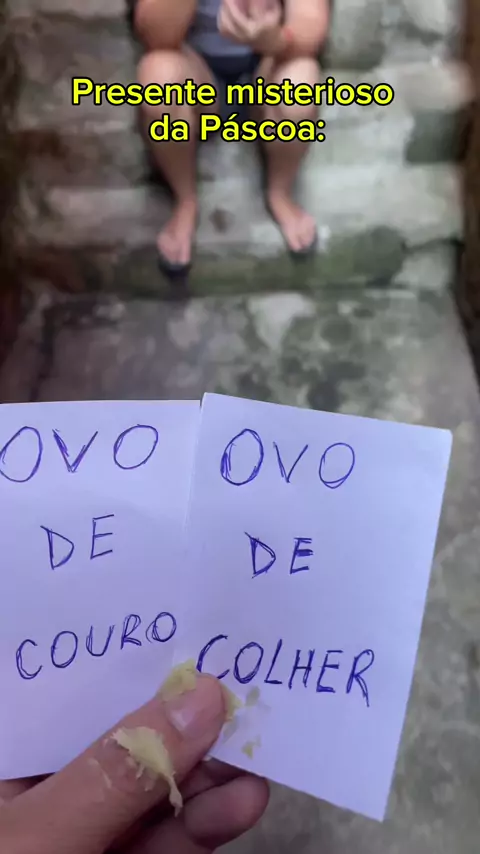 Presente misterioso
da Páscoa:
OVO
DE
COURO
OVO
DE
COLHER